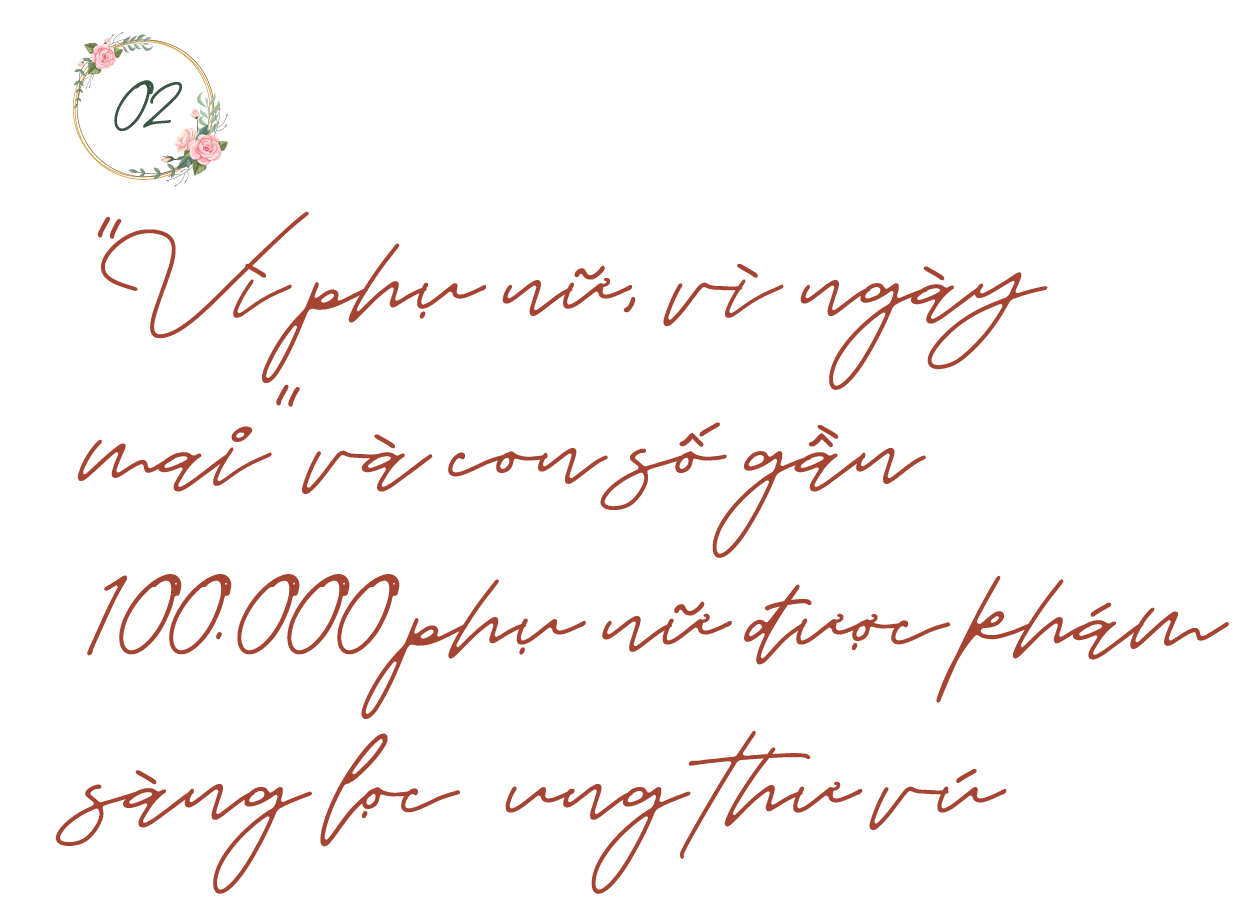 02
"Vì phụ nữ, vì ngày
mai" và con số gần
100.000 phụ nữ được khám
sàng lọc ung thư vú